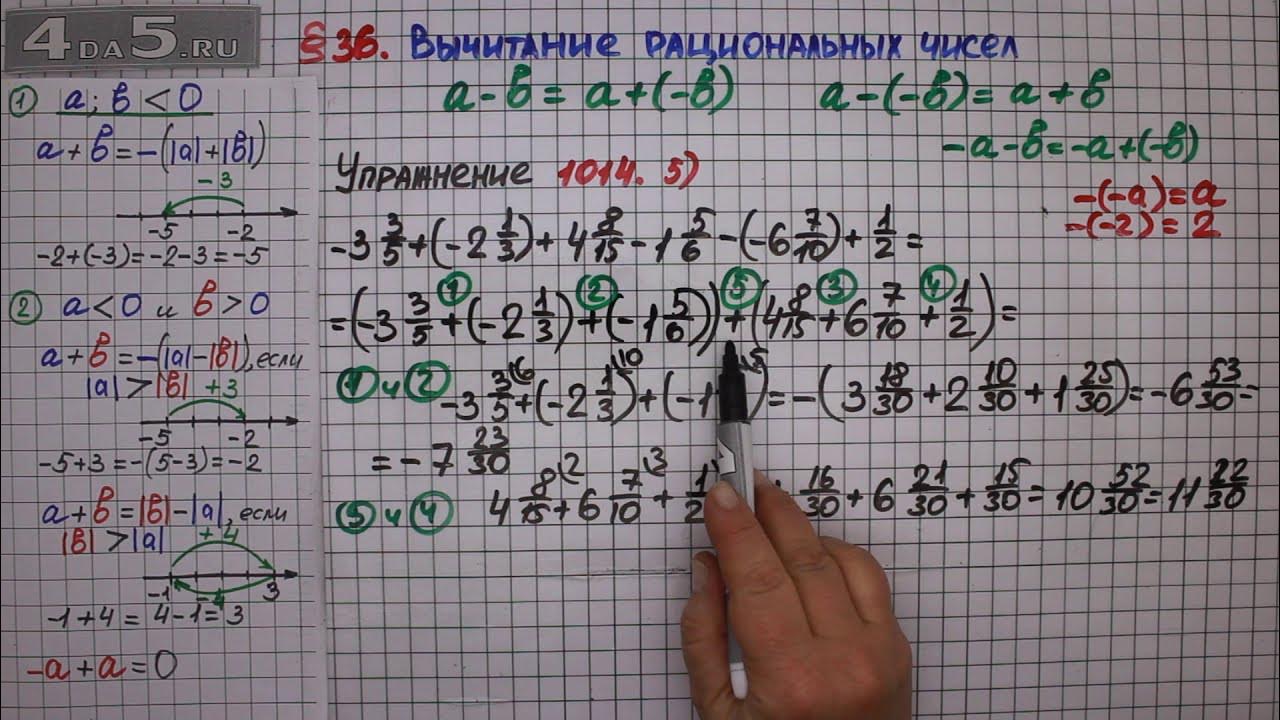 4DA5.RU
§ 36. Вычитание рациональных чисел
a - b = a + (-b)   a - (-b) = a + b
-a - b = -a + (-b)
-(-a) = a
-(-2) = 2
① a; b < 0
a + b = -(|a| + |b|)
-3
-5 -2
-2 + (-3) = -2 - 3 = -5
② a < 0 и b > 0
a + b = -(|a| - |b|), если
|a| > |b|
+3
-5 -2
-5 + 3 = -(5 - 3) = -2
a + b = |b| - |a|, если
|b| > |a|
+4
-1 -4 3
-1 + 4 = 4 - 1 = 3
-a + a = 0
Упражнение 1014. 5)
-3 3/5 + (-2 1/3) + 4 8/15 - 1 5/6 - (-6 7/10) + 1/2 =
① ② ⑤ ③ ④
= (-3 3/5 + (-2 1/3) + (-1 5/6)) + (4 8/15 + 6 7/10 + 1/2) =
① и ② -3 3/5 \6 + (-2 1/3 \10) + (-1 \5) = -(3 18/30 + 2 10/30 + 1 25/30) = -6 53/30 =
= -7 23/30
③ и ④ 4 8/15 \2 + 6 7/10 \3 + 1/2 16/30 + 6 21/30 + 15/30 = 10 52/30 = 11 22/30